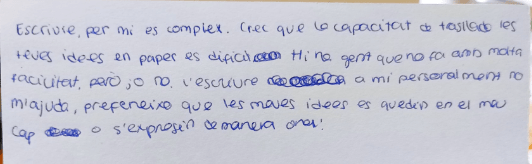 Escriure, per mi es complex. Crec que la capacitat de tasllada les
teves idees en paper es dificil Hi na gent que no fa amb molta
facilitat, però jo no. L'escriure a mi personalment no
m'ajuda, prefereixo que les meves idees es quedin en el meu
cap o s'expresin de manera oral.